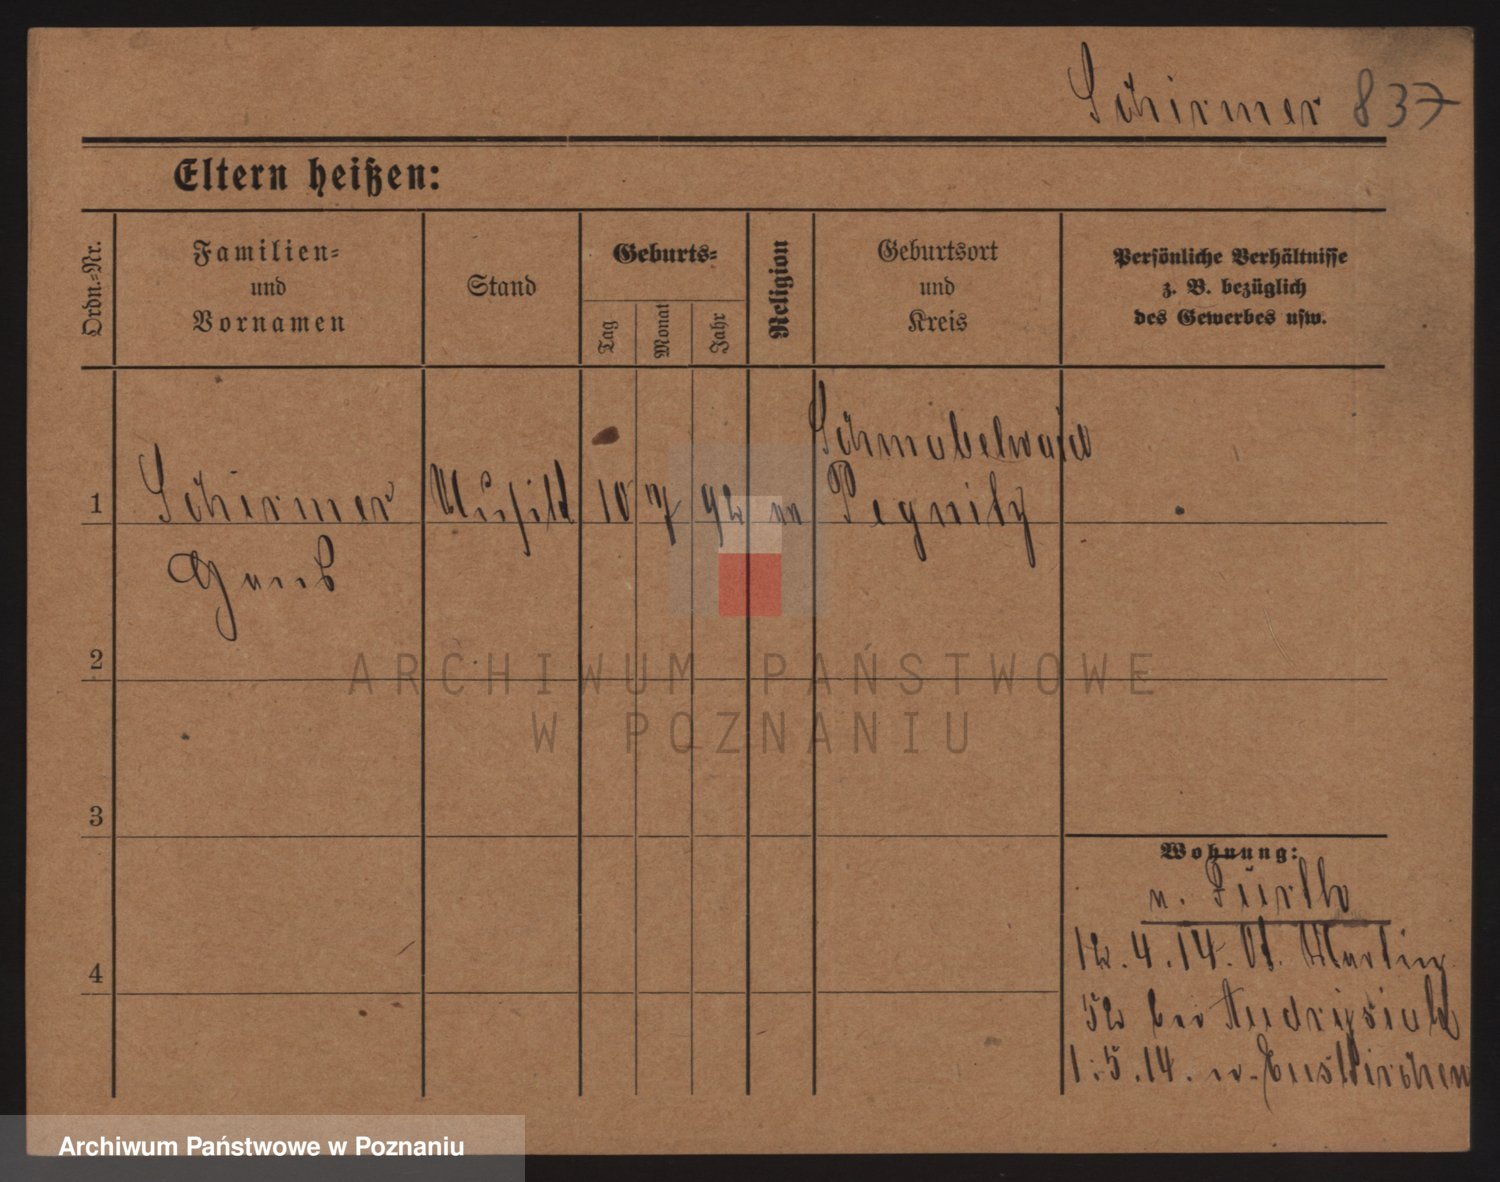 Schirmer 837
Eltern heißen:
Ordn.-Nr.
Familien-
und
Vornamen
Stand
Geburts-
Tag
Monat
Jahr
Religion
Geburtsort
und
Kreis
Persönliche Verhältnisse
z. B. bezüglich
des Gewerbes usw.
1
Schirmer
Hans
10 7 92
Schnabelwaid
Pegnitz
2
3
4
Wohnung:
n. Fürth
12.4.14. St. Martin
52 bei
1.5.14. n. Euskirchen
ARCHIWUM PAŃSTWOWE
W POZNANIU
Archiwum Państwowe w Poznaniu